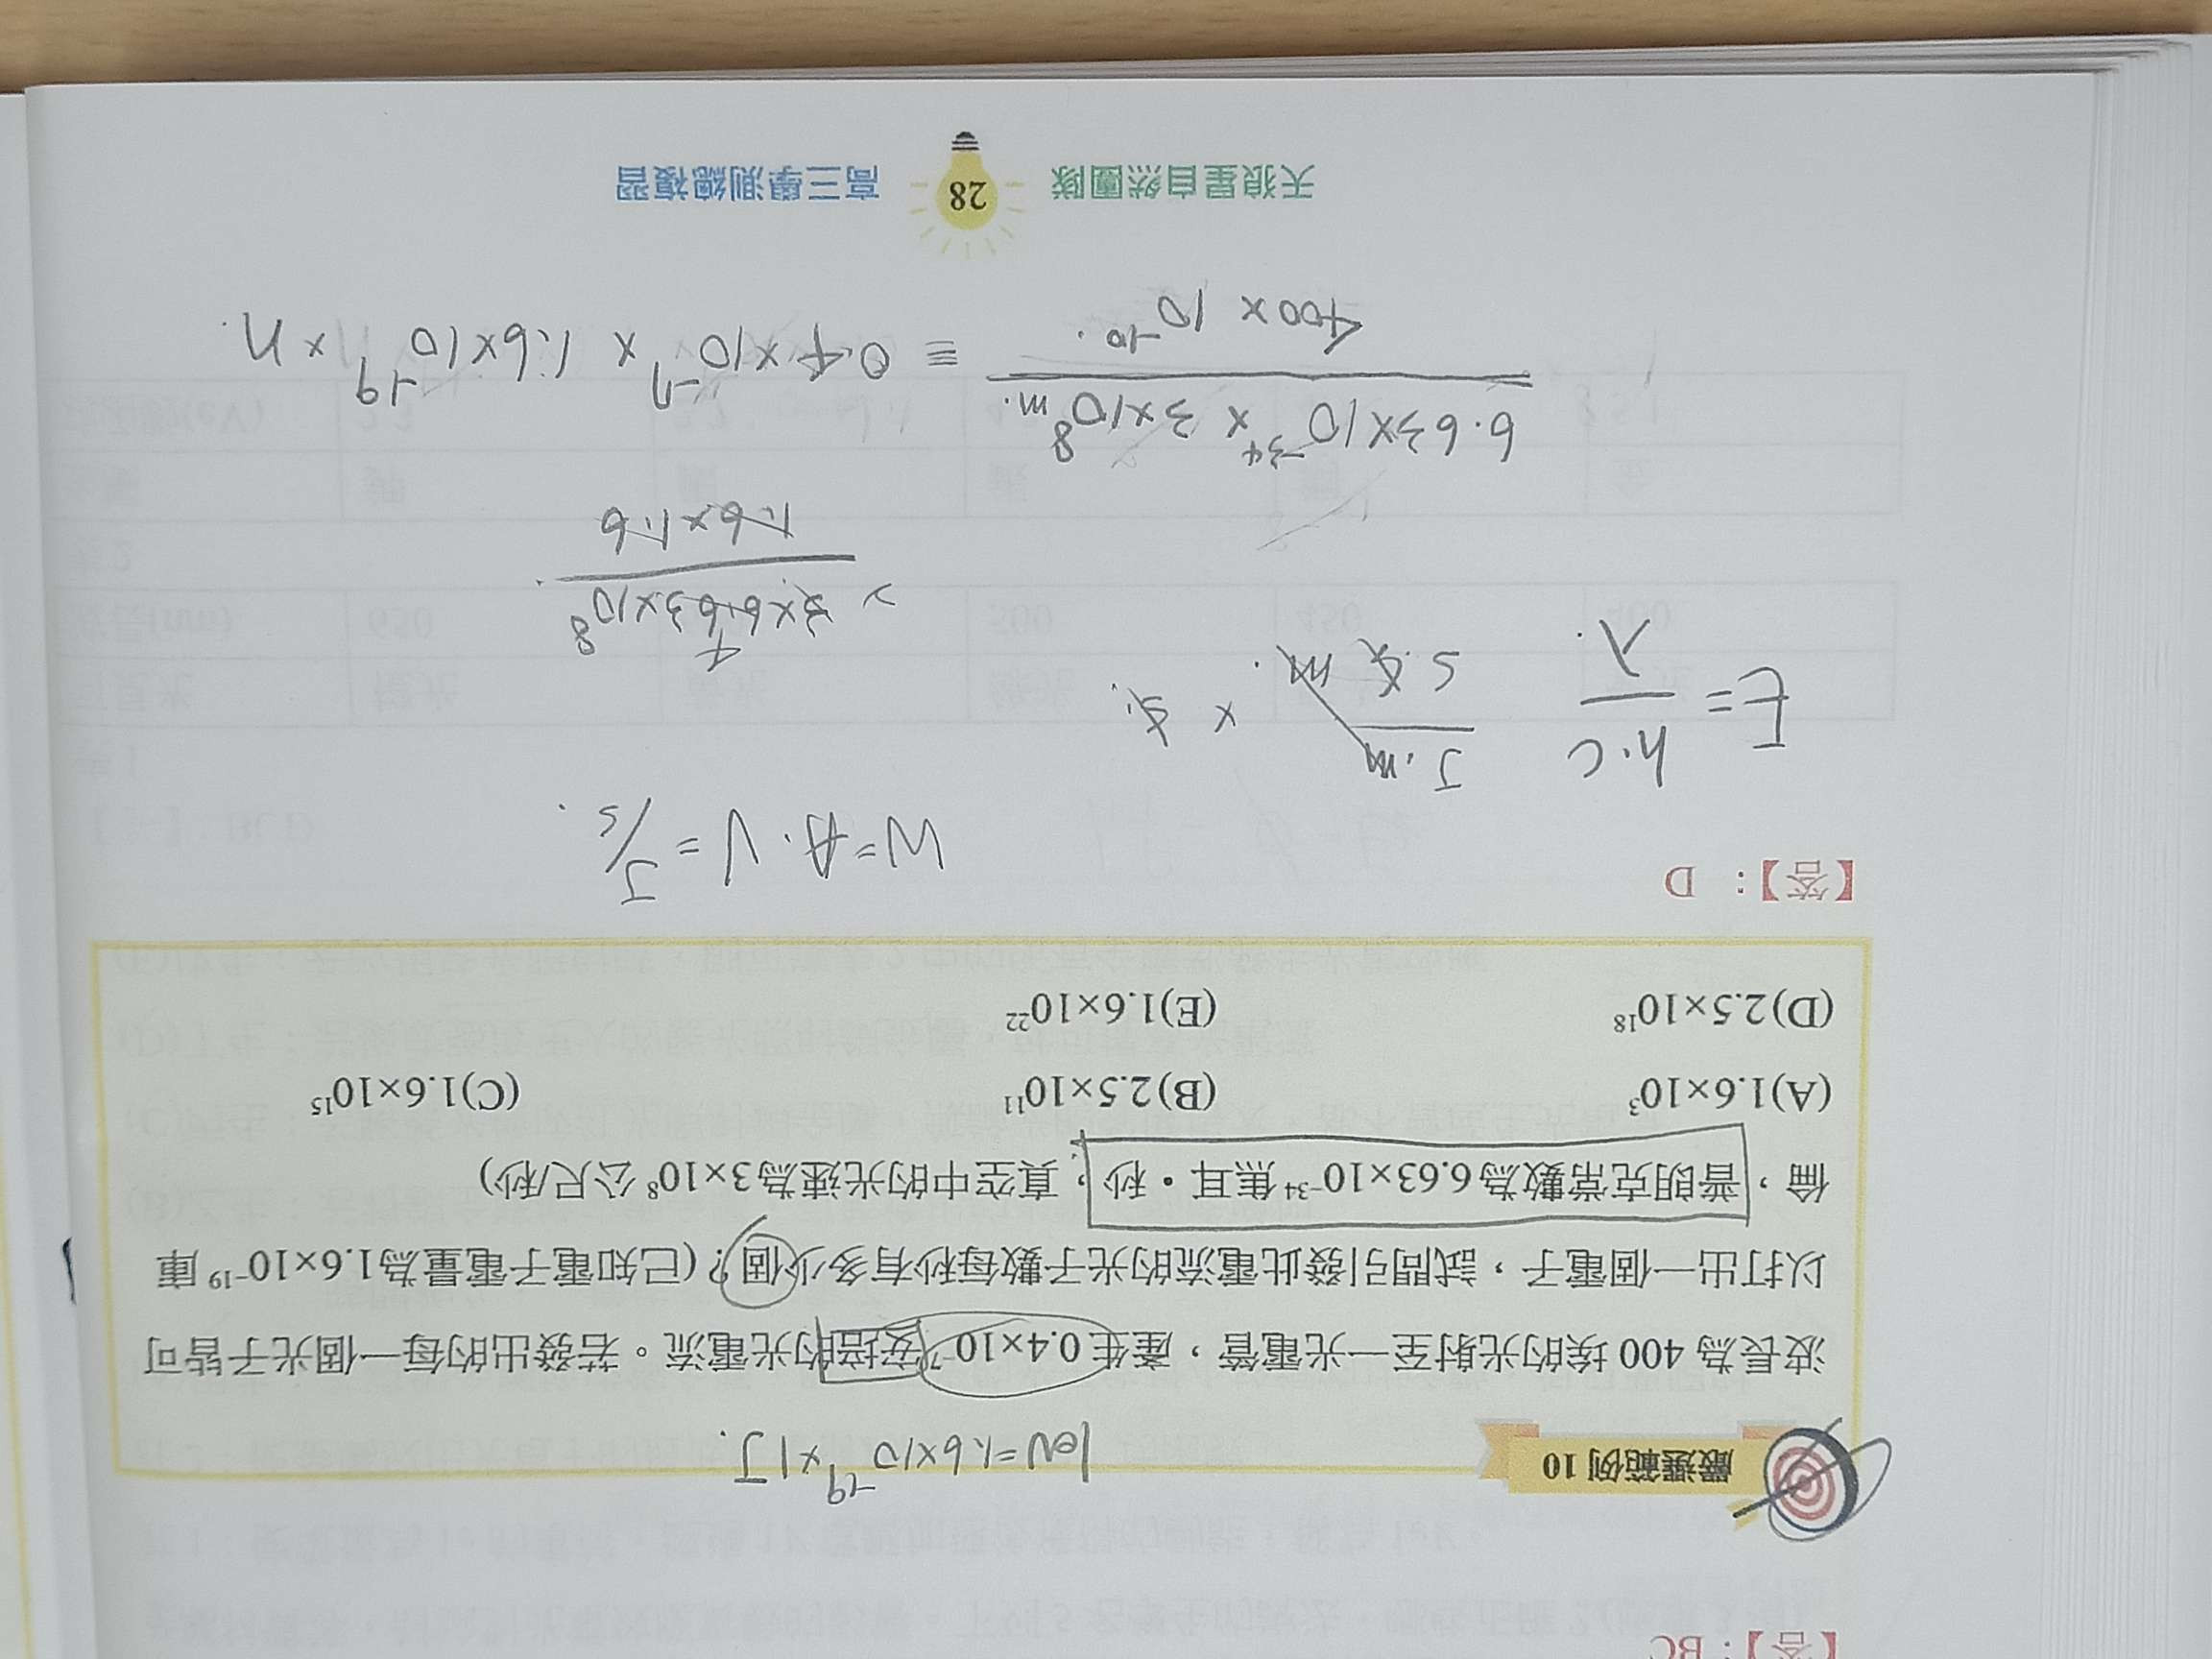 【答】：BC
嚴選範例 10
1eV=1.6×10⁻¹⁹×1J.
波長為 400 埃的光射至一光電管，產生 0.4×10⁻⁷安培的光電流。若發出的每一個光子皆可
以打出一個電子，試問引發此電流的光子數每秒有多少個？(已知電子電量為1.6×10⁻¹⁹ 庫
倫，普朗克常數為 6.63×10⁻³⁴ 焦耳・秒，真空中的光速為3×10⁸ 公尺/秒)
(A)1.6×10³ (B)2.5×10¹¹ (C)1.6×10¹⁵
(D)2.5×10¹⁸ (E)1.6×10²²
【答】： D
W=A·V=J/s.
E=h·c/λ.
J·m/s·m. ×
6.63×10⁻³⁴×3×10⁸ m./400×10⁻¹⁰. = 0.4×10⁻⁷×1.6×10⁻¹⁹×n.
天狼星自然團隊 28 高三學測總複習